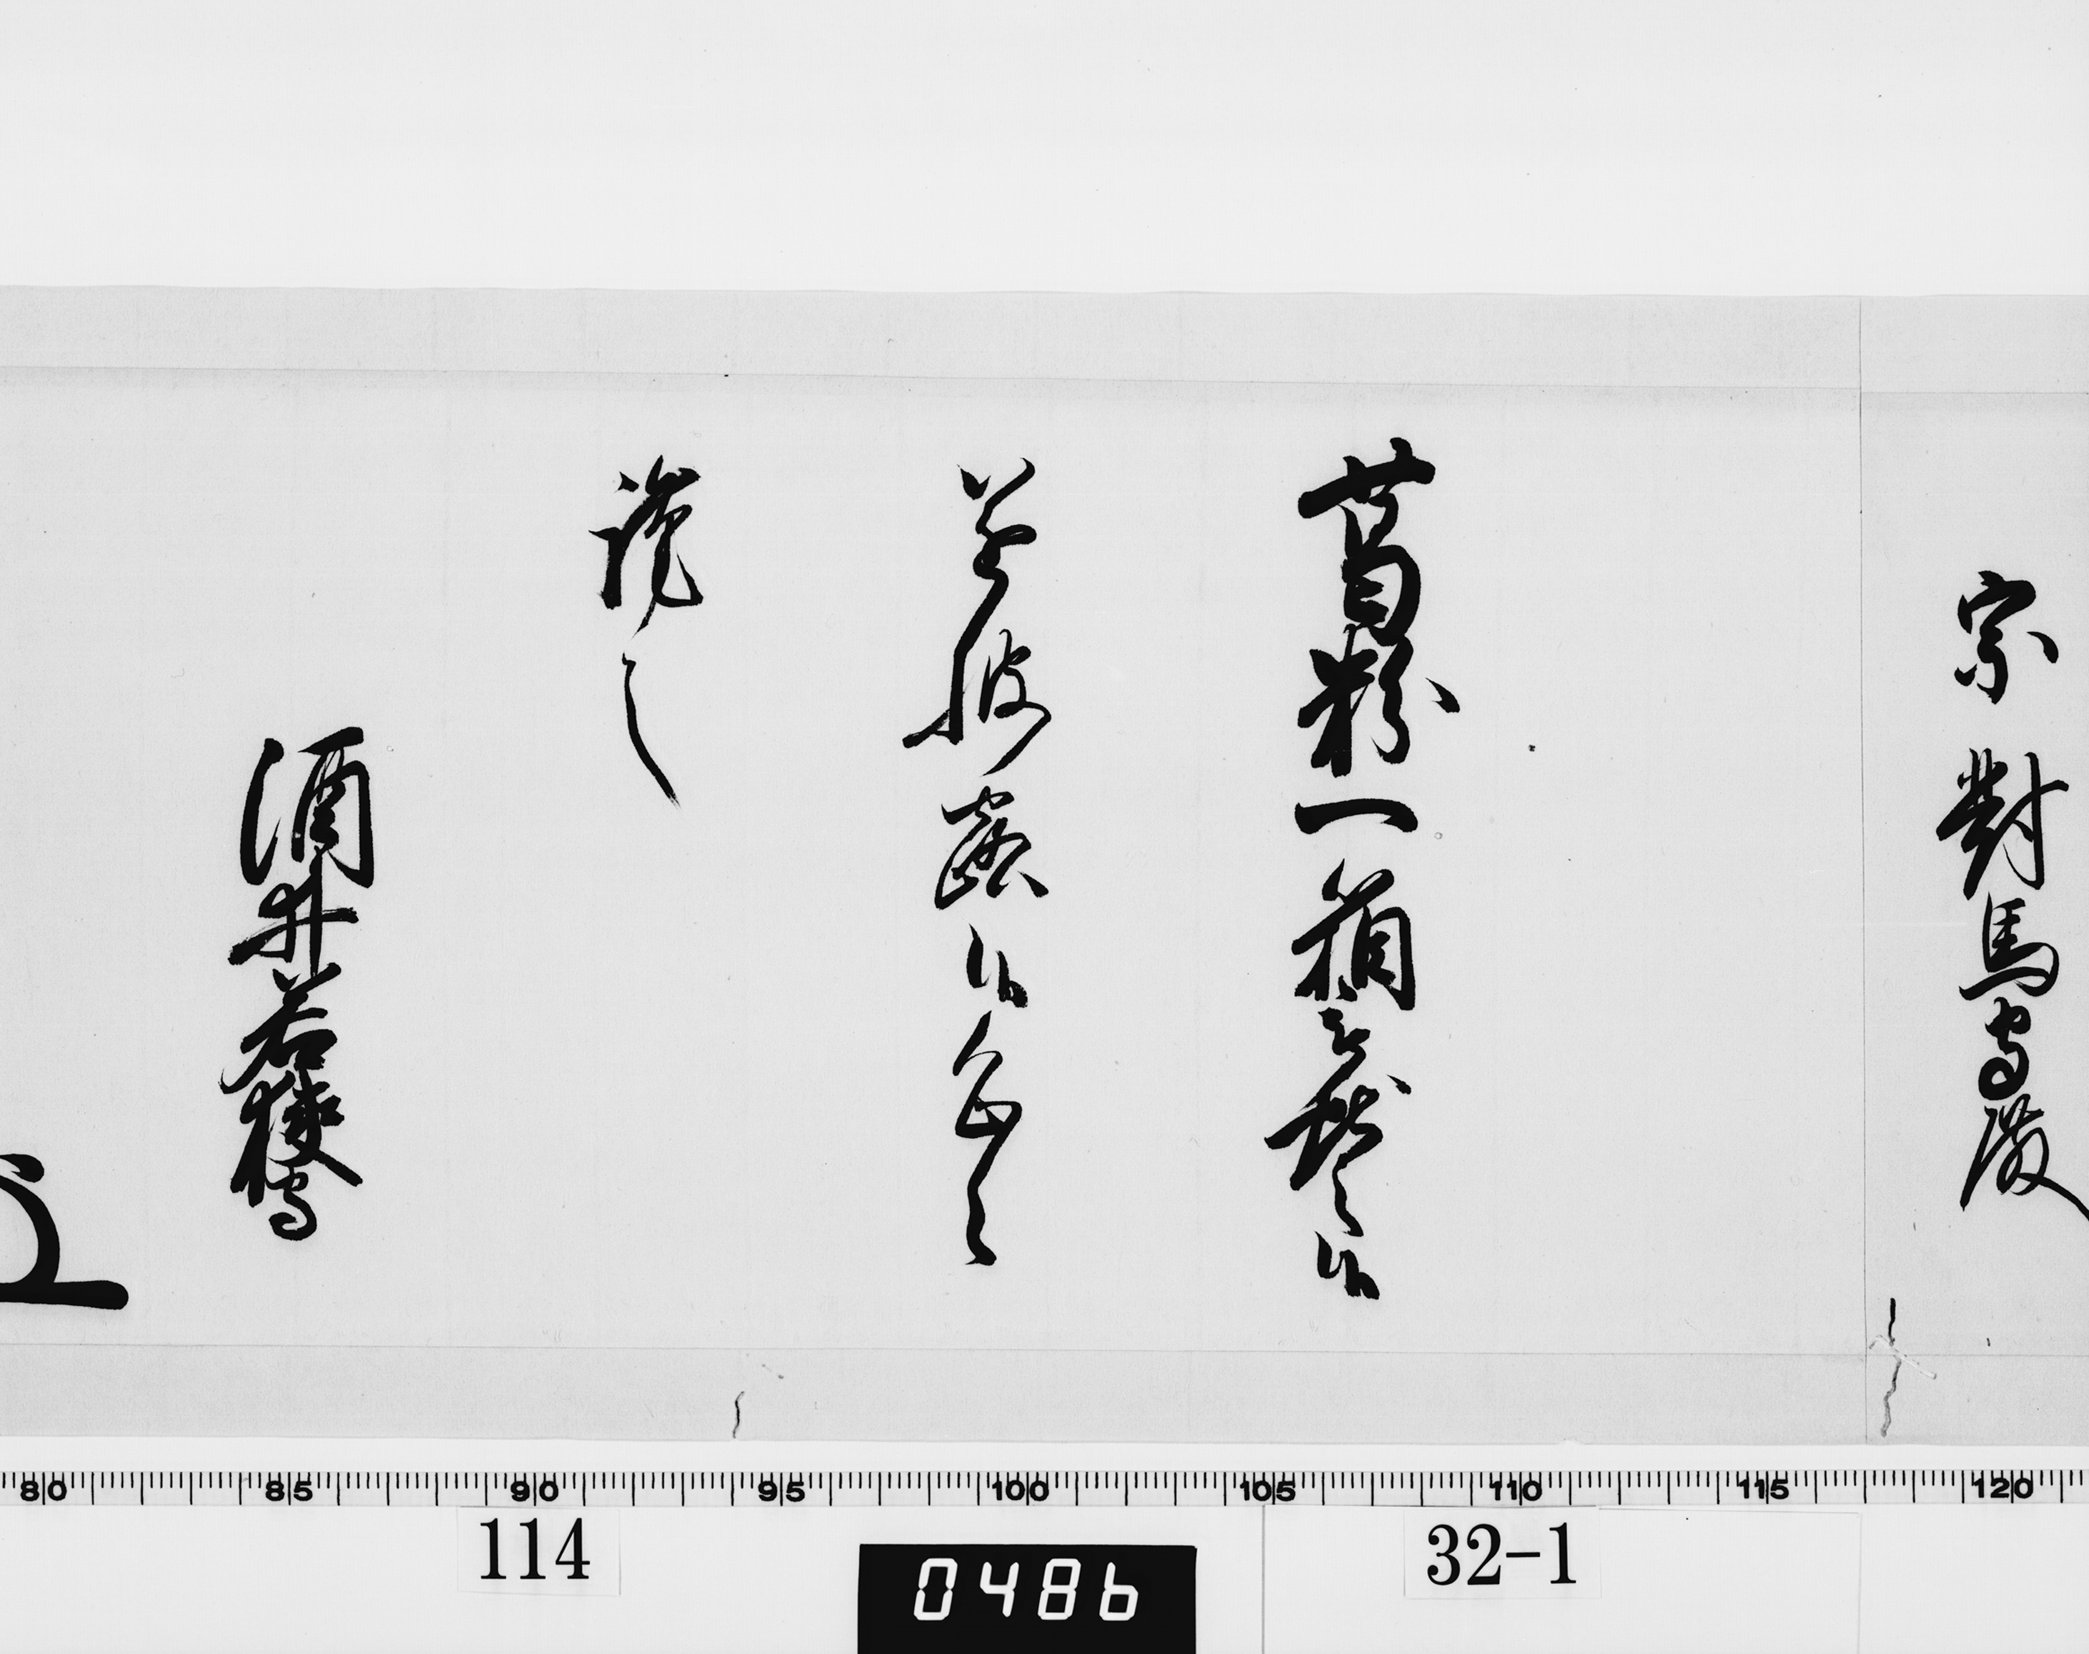 宗對馬守殿
葛粉一箱被献之候
遂披露候恐々
謹言
酒井若狹守
80 85 90 95 100 105 110 115 120
114
0486
32-1